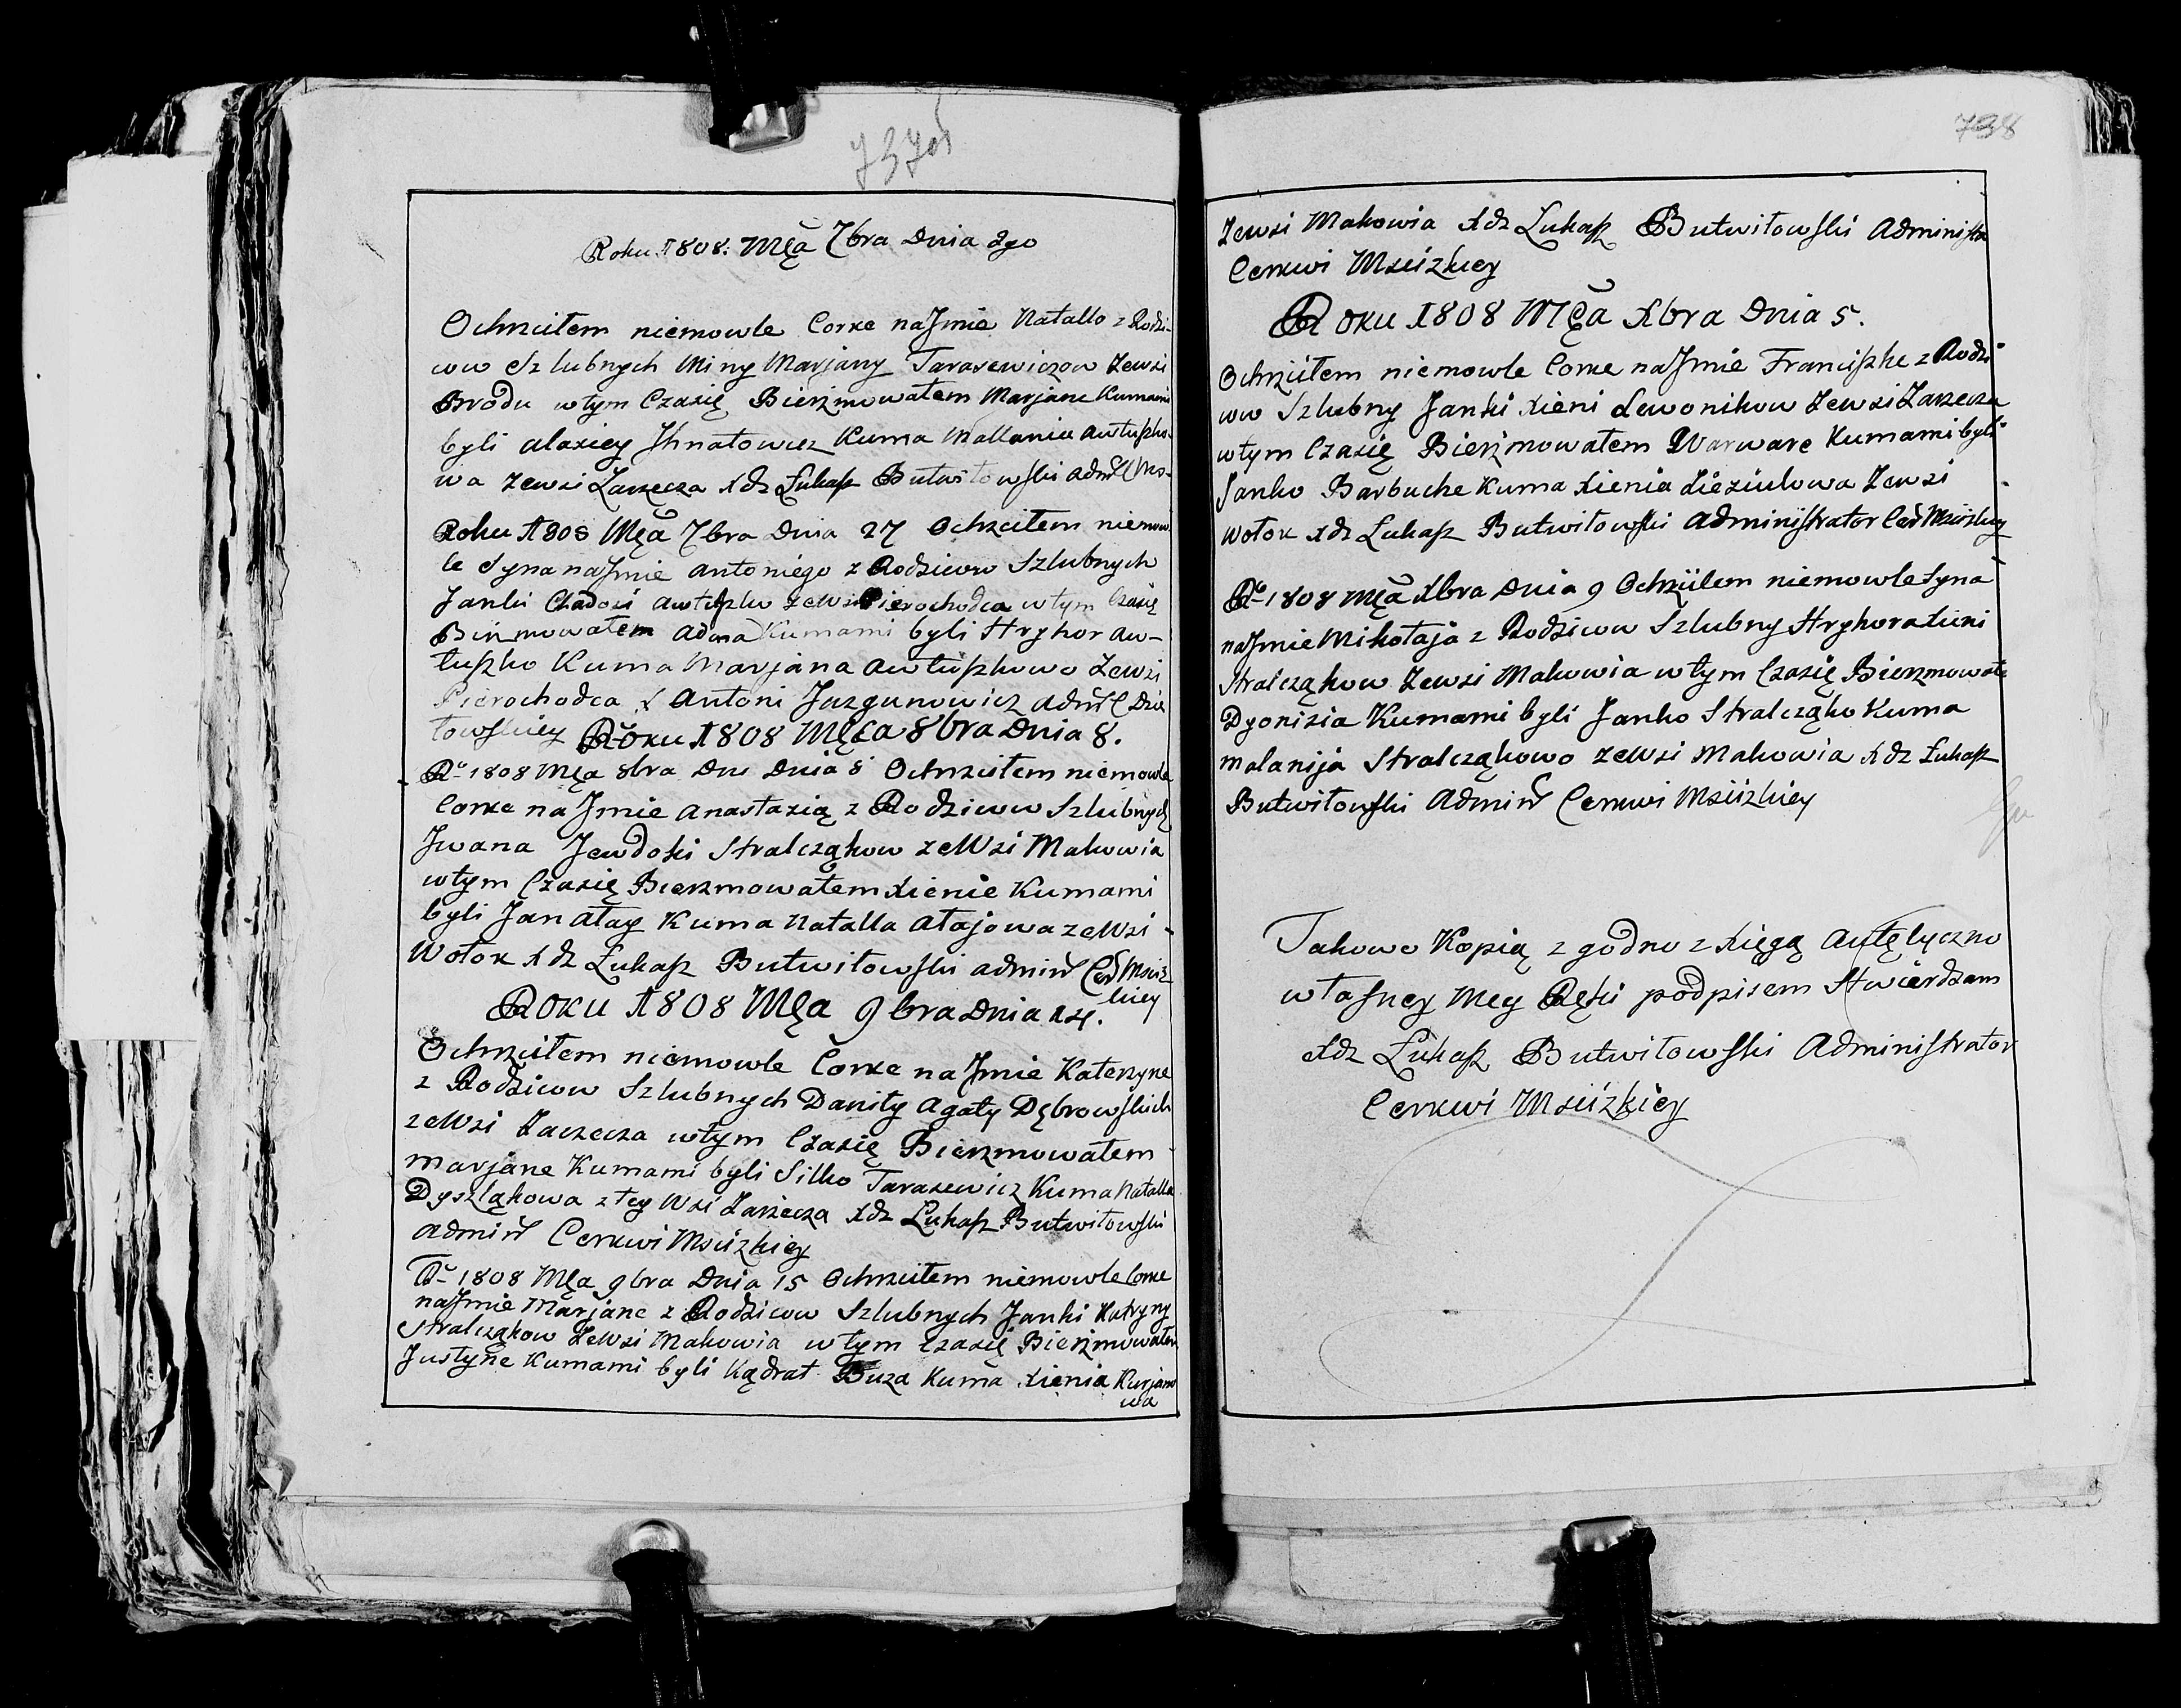 737об
Roku 1808: Męa 7bra Dnia 2go
Ochrzciłem niemowle Corke na Jmie Natallo z Rodzi-
cow Szlubnych Miny Marjany Tarasewiczow Zewsi
Brodu wtym Czasię Bierzmowałem Marjane Kumami
byli Alaxiey Jhnatowicz Kuma Mallania Awtuszko-
wa Zewsi Zarzecza Xdz Łukasz Butwiłowski Admr C Ms-
Roku 1808 Męa 7bra Dnia 27 Ochrzciłem niemow-
le Syna na Jmie Antoniego z Rodzicow Szlubnych
Janki Chadosi Awtuszko zewsi Pierochodca wtym Czasię
Birzmowałem Adma Kumami byli Hryhor Aw-
tuszko Kuma Marjana Awtuszkowo Zewsi
Pierochodca X Antoni Jazgunowicz Admr C Dzie
towskiey Roku 1808 Męca 8bra Dnia 8.
Ro 1808 Męa 8bra Dni Dnia 8 Ochrzciłem niemowle
Corke na Jmie Anastazią z Rodzicow Szlubnych
Jwana Jewdoki Stralcząkow zeWsi Makowia
wtym Czasię Bierzmowałem Xienie Kumami
byli Jan Ałay Kuma Natalla Ałajowa zeWsi
Wołok Xdz Łukasz Butwiłowski Admir Cer Mscisz
kiey
Roku 1808 Męa 9bra Dnia 14.
Ochrzciłem niemowle Corke na Jmie Katerzyne
z Rodzicow Szlubnych Daniły Agaty Dębrowskich
zeWsi Zarzecza wtym Czasię Bierzmowałem
Marjane Kumami byli Silko Tarasewicz Kuma Natalla
Dyszląkowa z tey Wsi Zarzecza Xdz Łukasz Butwiłowski
Admir Cerkwi Msciżkiey
Ro 1808 Męa 9bra Dnia 15 Ochrzciłem niemowle Corke
na Jmie Marjane z Rodzicow Szlubnych Janki Katryny
Stralcząkow ZeWsi Makowia wtym Czasię Bierzmowałem
Justyne Kumami byli Kądrat Buza Kuma Xienia Kurjano
wa
738
Zewsi Makowia Xdz Łukasz Butwiłowski Administr
Cerkwi Msciżkiey
Roku 1808 Męa Xbra Dnia 5.
Ochrzciłem niemowle Corke na Jmie Franciszke z Rodzi
cow Szlubny Janki Xieni Lewonikow Zewsi Zarzecza
wtym Czasię Bierzmowałem Warware Kumami byli
Janko Barbuche Kuma Xienia Kieziulowa Zewsi
Wołok Xdz Łukasz Butwiłowski Administrator Cer Msciżkiey
Ro 1808 Męa Xbra Dnia 9 Ochrzciłem niemowle Syna
na Jmie Mikołaja z Rodzicow Szlubny Hryhora Xieni
Stralcząkow Zewsi Makowia wtym Czasię Bierzmowałe
Dyonizia Kumami byli Janko Stralcząko Kuma
Malanija Stralcząkowo zeWsi Makowia Xdz Łukasz
Butwiłowski Admir Cerkwi Msciżkiey
Takowo Kopią zgodno z Xięgą Autętyczno
własney Mey Ręki podpisem Stwierdzam
Xdz Łukasz Butwiłowski Administrator
Cerkwi Msciżkiey